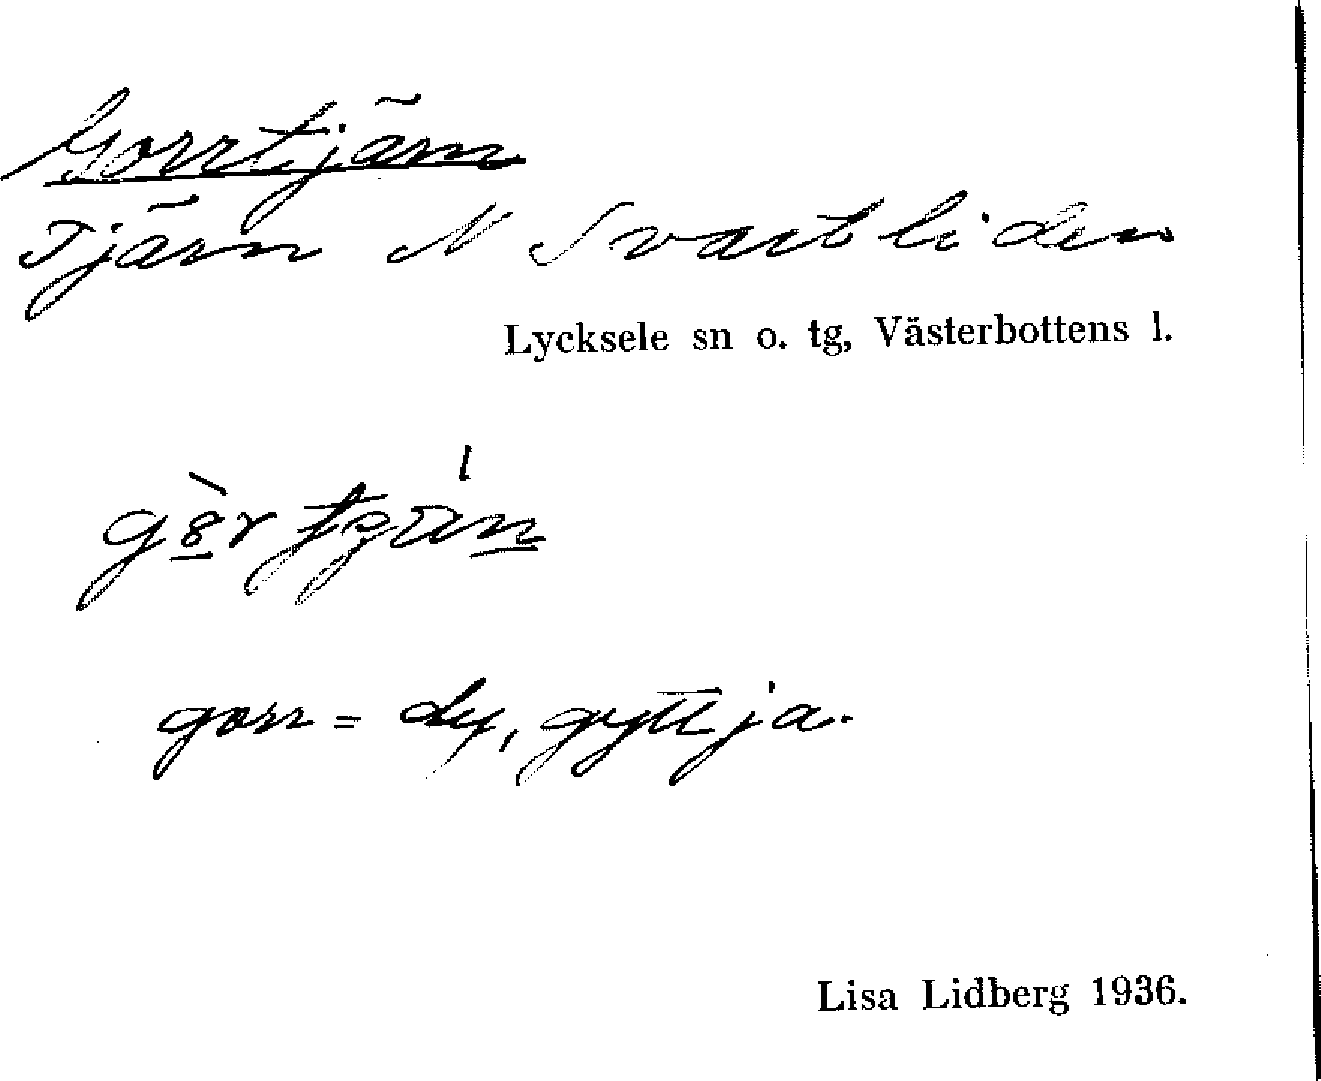 Gorrtjärn
Tjärn N Svartliden
Lycksele sn o. tg, Västerbottens l.
gorr = dy, gyttja.
Lisa Lidberg 1936.